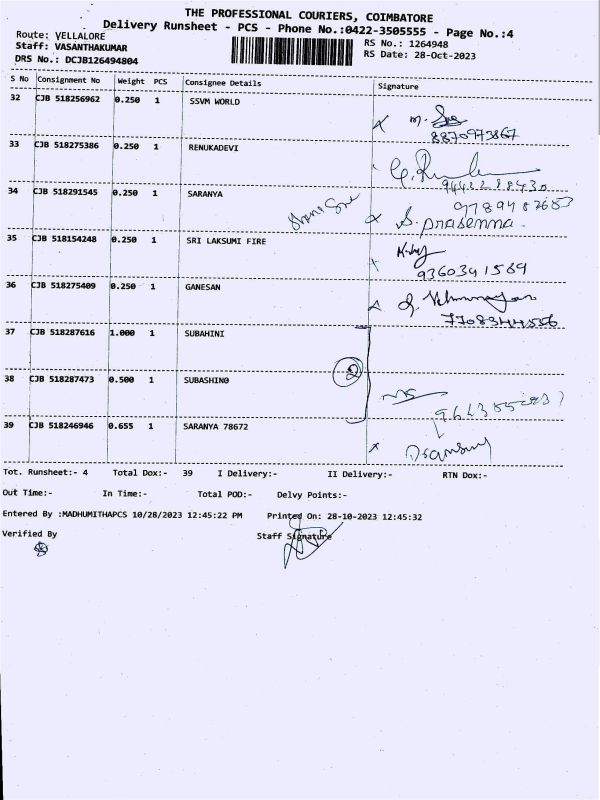 THE PROFESSIONAL COURIERS, COIMBATORE
Delivery Runsheet - PCS - Phone No.:0422-3505555 - Page No.:4
Route: VELLALORE
RS No.: 1264948
Staff: VASANTHAKUMAR
RS Date: 28-Oct-2023
DRS No.: DCJB126494804
S No Consignment No Weight PCS Consignee Details Signature
32 CJB 518256962 0.250 1 SSVM WORLD
8870973867
33 CJB 518275386 0.250 1 RENUKADEVI
34 CJB 518291545 0.250 1 SARANYA
S. prasenna.
35 CJB 518154248 0.250 1 SRI LAKSUMI FIRE
9360341589
36 CJB 518275409 0.250 1 GANESAN
7708344556
37 CJB 518287616 1.000 1 SUBAHINI
2
38 CJB 518287473 0.500 1 SUBASHINO
39 CJB 518246946 0.655 1 SARANYA 78672
Tot. Runsheet:- 4 Total Dox:- 39 I Delivery:- II Delivery:- RTN Dox:-
Out Time:- In Time:- Total POD:- Delvy Points:-
Entered By :MADHUMITHAPCS 10/28/2023 12:45:22 PM Printed On: 28-10-2023 12:45:32
Verified By Staff Signature